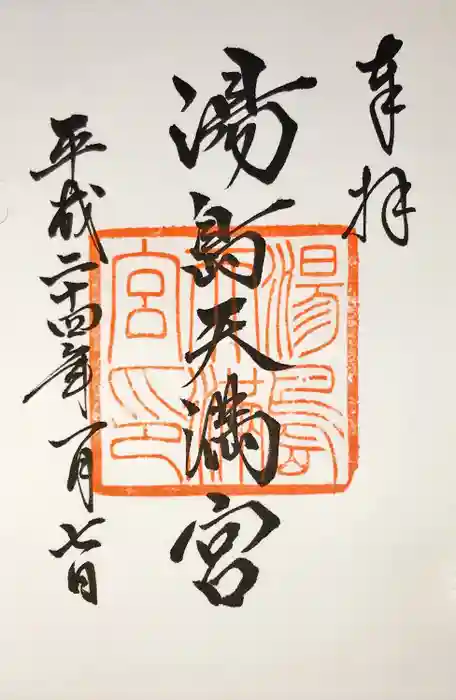 奉拝
湯島天満宮
湯島天満宮印
平成二十四年一月七日